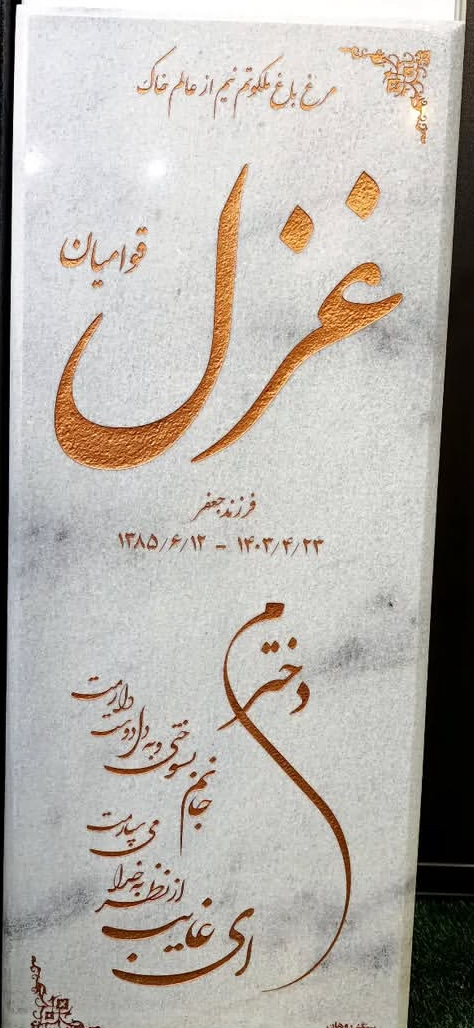 مرغ باغ ملکوتم نیم از عالم خاک
غزل
قوامیان
فرزند جعفر
۱۳۸۵/۶/۱۲ - ۱۴۰۳/۴/۲۳
دخترم
ای غایب
از نظر به خدا
می سپارمت
جانم
بسوختی و به دل دوست
دارمت